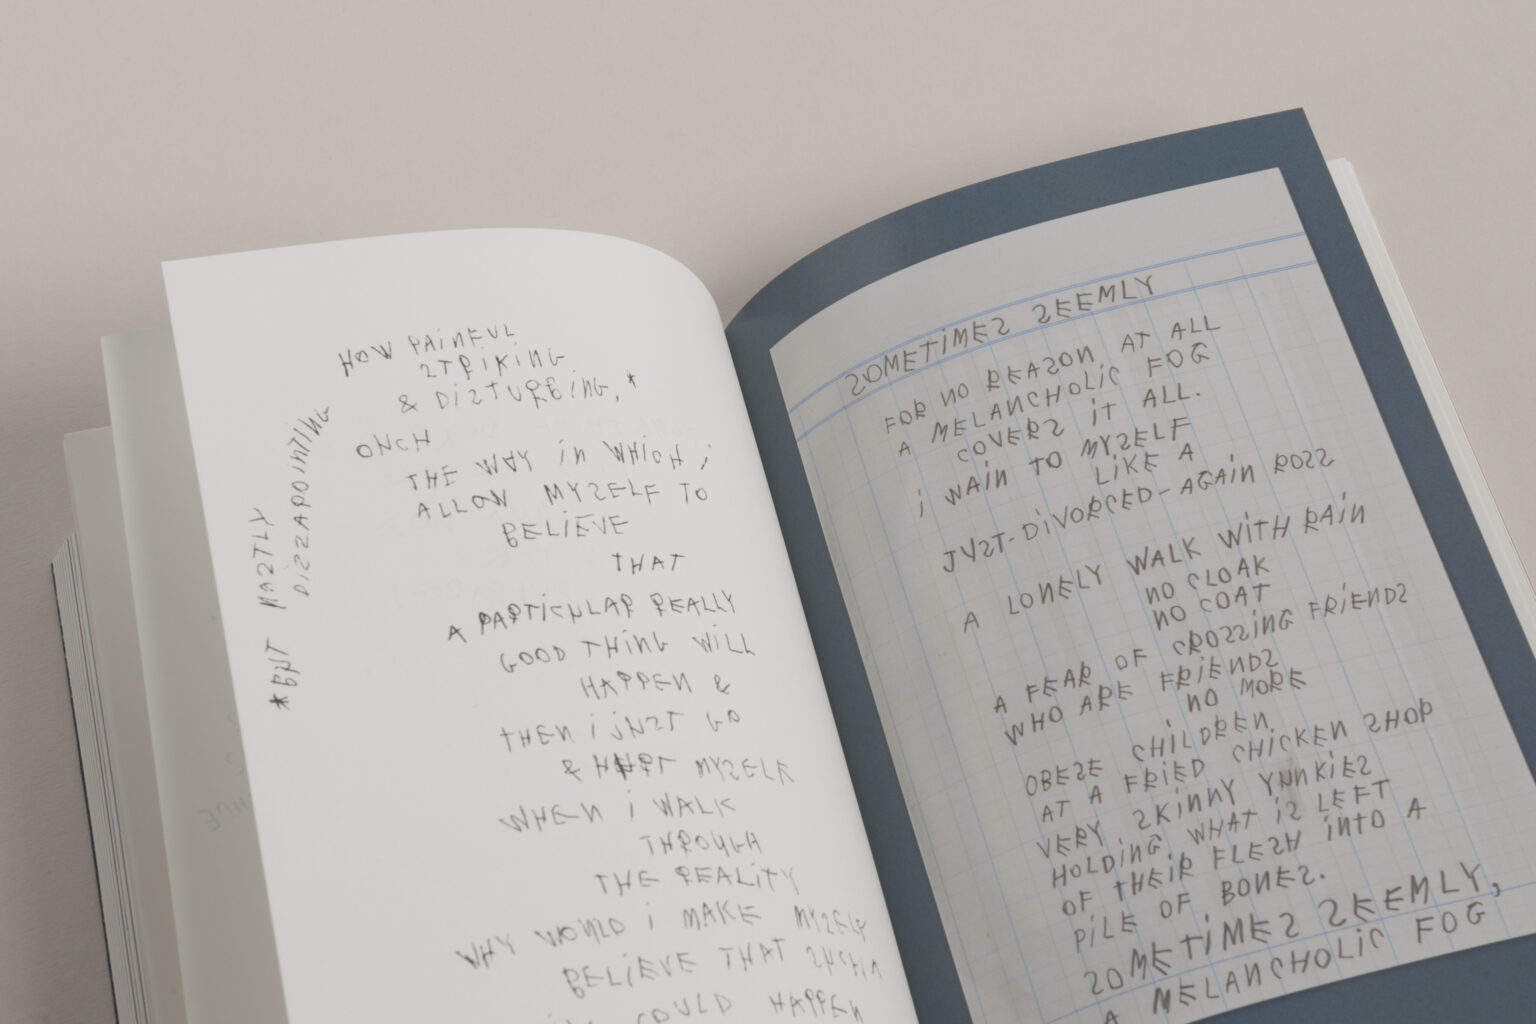 HOW PAiNFUL
STRiKING
& DiSTURBING,*
ONCH
THE WAY iN WHiCH i
ALLOW MYSELF TO
BELiEVE
THAT
A PARTiCULAR REALLY
GOOD THiNG WiLL
HAPPEN &
THEN i JUST GO
& HURT MYSELF
WHEN i WALK
THROUGH
THE REALiTY
WHY WOULD i MAKE MYSELF
BELiEVE THAT
COULD HAPPEN
*BUT MOSTLY
DiSSAPOiNTiNG
SOMETiMES SEEMLY
FOR NO REASON AT ALL
A MELANCHOLiC FOG
COVERS iT ALL.
i WAiN TO MYSELF
LiKE A
JUST-DiVORCED-AGAiN ROSS
A LONELY WALK WiTH RAiN
NO CLOAK
NO COAT
A FEAR OF CROSSiNG FRiENDS
WHO ARE FRiENDS
NO MORE
OBESE CHiLDREN
AT A FRiED CHiCKEN SHOP
VERY SKiNNY YUNKiES
HOLDiNG WHAT iS LEFT
OF THEiR FLESH iNTO A
PiLE OF BONES.
SOMETiMES SEEMLY,
A MELANCHOLiC FOG